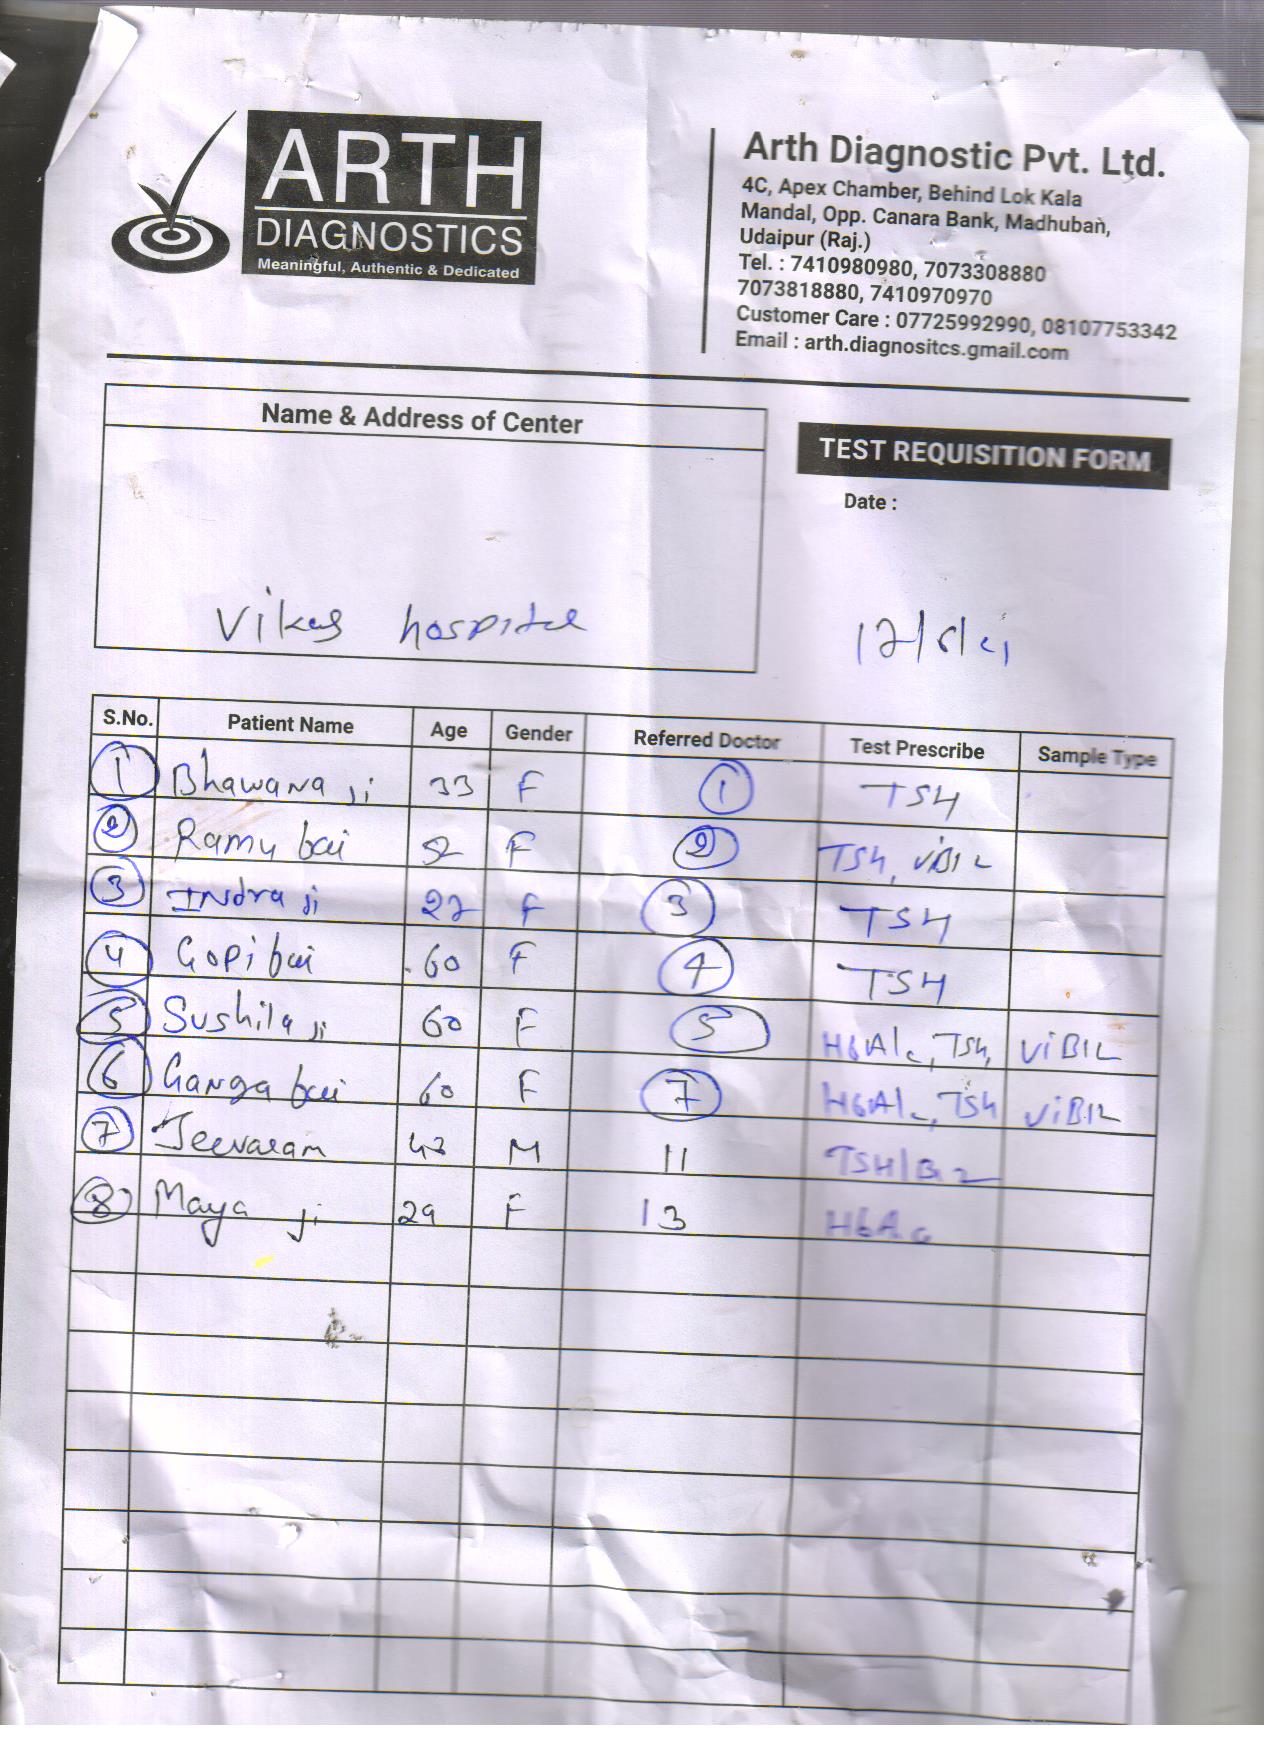 ARTH
DIAGNOSTICS
Meaningful, Authentic & Dedicated
Arth Diagnostic Pvt. Ltd.
4C, Apex Chamber, Behind Lok Kala
Mandal, Opp. Canara Bank, Madhuban,
Udaipur (Raj.)
Tel. : 7410980980, 7073308880
7073818880, 7410970970
Customer Care : 07725992990, 08107753342
Email : arth.diagnositcs.gmail.com
Name & Address of Center
TEST REQUISITION FORM
Date :
Vikas hospital
S.No. Patient Name Age Gender Referred Doctor Test Prescribe Sample Type
1 Bhawana ji 33 F 1 TSH
2 Ramu bai 52 F 2 TSH, ViB12
3 Indra ji 27 F 3 TSH
4 Gopi bai 60 F 4 TSH
5 Sushila ji 60 F 5 HbA1c, TSH, ViB12
6 Ganga bai 60 F 7 HbA1c, TSH ViB12
7 Jeevaram 43 M 11 TSH/B12
8 Maya ji 29 F 13